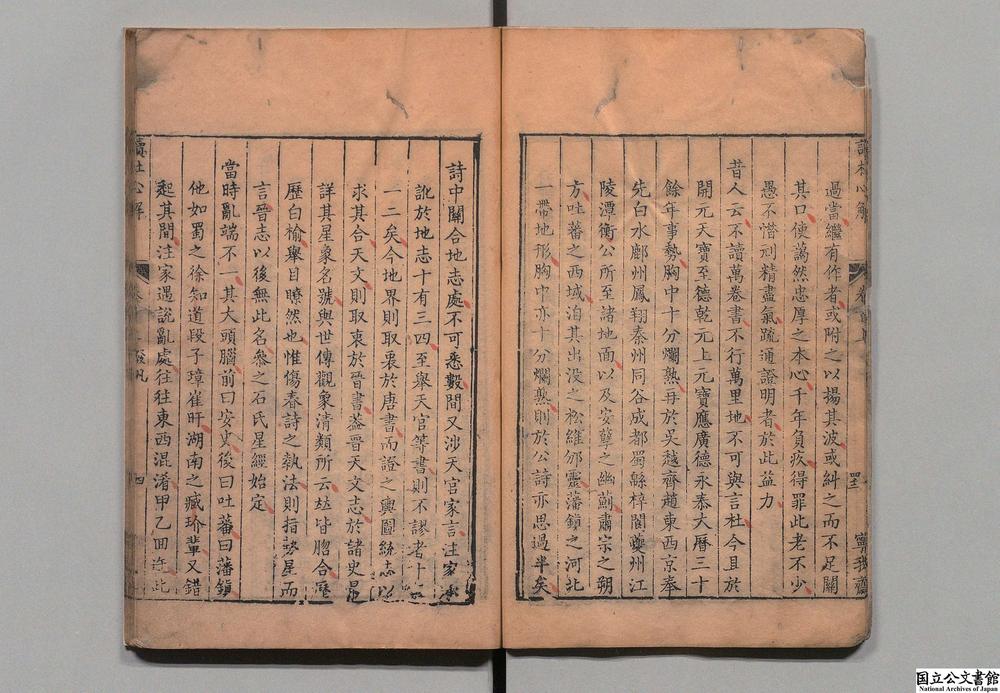 讀杜心解
過當繼有作者或附之以揚其波或糾之而不足關
其口使藹然忠厚之本心千年負疚得罪此老不少
愚不惜刓精盡氣疏通證明者於此益力
昔人云不讀萬卷書不行萬里地不可與言杜今且於
開元天寶至德乾元上元寶應廣德永泰大曆三十
餘年事勢胸中十分爛熟再於吳越齊趙東西京奉
先白水鄜州鳳翔秦州同谷成都蜀緜梓閬夔州江
陵潭衡公所至諸地面以及安孽之幽薊肅宗之朔
方吐蕃之西域洎其出没之松維邠靈藩鎮之河北
一帶地形胸中亦十分爛熟則於公詩亦思過半矣
寧我齋
詩中關合地志處不可悉數間又涉天官家言注家
訛於地志十有三四至舉天官等書則不謬者十
一二矣今地界則取裏於唐書而證之輿圖絲志以
求其合天文則取衷於晉書葢晉天文志於諸史最
詳其星象名號與世傳觀象清類所云玆皆脗合歷
歷白榆舉目瞭然也惟傷春詩之執法則指
星而
言晉志以後無此名叅之石氏星經始定
當時亂端不一其大頭腦前曰安史後曰吐蕃曰藩鎮
他如蜀之徐知道段子璋崔旰湖南之臧玠輩又錯
起其間注家遇說亂處往往東西混淆甲乙囬
此
讀杜心解
發凡
四
国立公文書館
National Archives of Japan